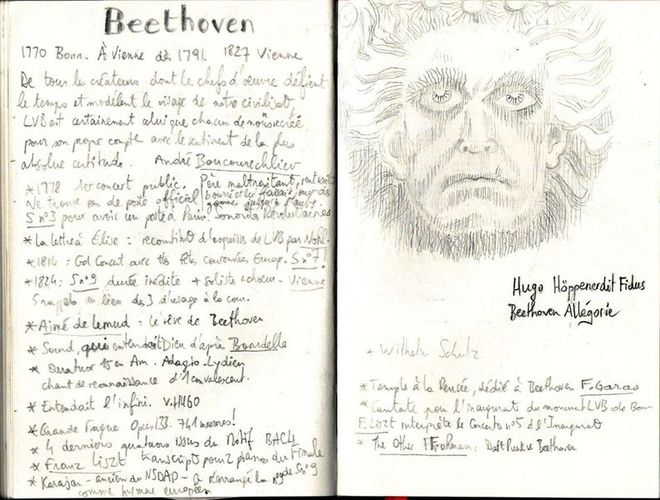 Beethoven
1770 Bonn. À Vienne dès 1791. 1827 Vienne
De tous les créateurs dont le chefs d'œuvre défient
le temps et modèlent le visage de notre civilisat.
LVB est certainement celui que chacun de nous recrée
pour son propre compte avec le sentiment de la plus
absolue certitude. André Boucourechliev
*1778 1er concert public. Père maltraitant, rentrait
Ne trouve pas de poste officiel
S n°3 pour avoir un poste à Paris. Sonorités Révolutionaires
* La lettre à Élise : reconstituto d'esquisses de LVB par Nohl.
*1814 : Gd Concert avec ttes têtes couronnées Europ. S n°7!
*1824: S n°9 durée inédite + soliste + choeur - Vienne
5 rappels au lieu des 3 d'usage à la cour.
* Aimé de Lemud : le rêve de Beethoven
* Sourd, qui entendait Dien d'après Bourdelle
* Quatuor 15 en Am. Adagio. Lydien
chant de reconnaissance d'1 convalescent.
* Entendait l'infini. V. HUGO
* Grande Fugue Opus 133. 741 mesures!
* 4 derniers quatuors issus du Motif BACH
* Franz Liszt transcript pour 2 pianos du Finale
de S n°9
* Karajan - ancien du NSDAP - a réarrangé la n°9
comme hymne européen
Hugo Höppener dit Fidus
Beethoven Allégorie
+ Wilhelm Schulz
* Temple à la Pensée, dédié à Beethoven F. Garas
* Cantate pour l'inaugurat du monument LVB de Bonn
F. Liszt interprète le Concerto n°5 à l'Inaugurat
* The Other : Daft Punk vs Beethoven